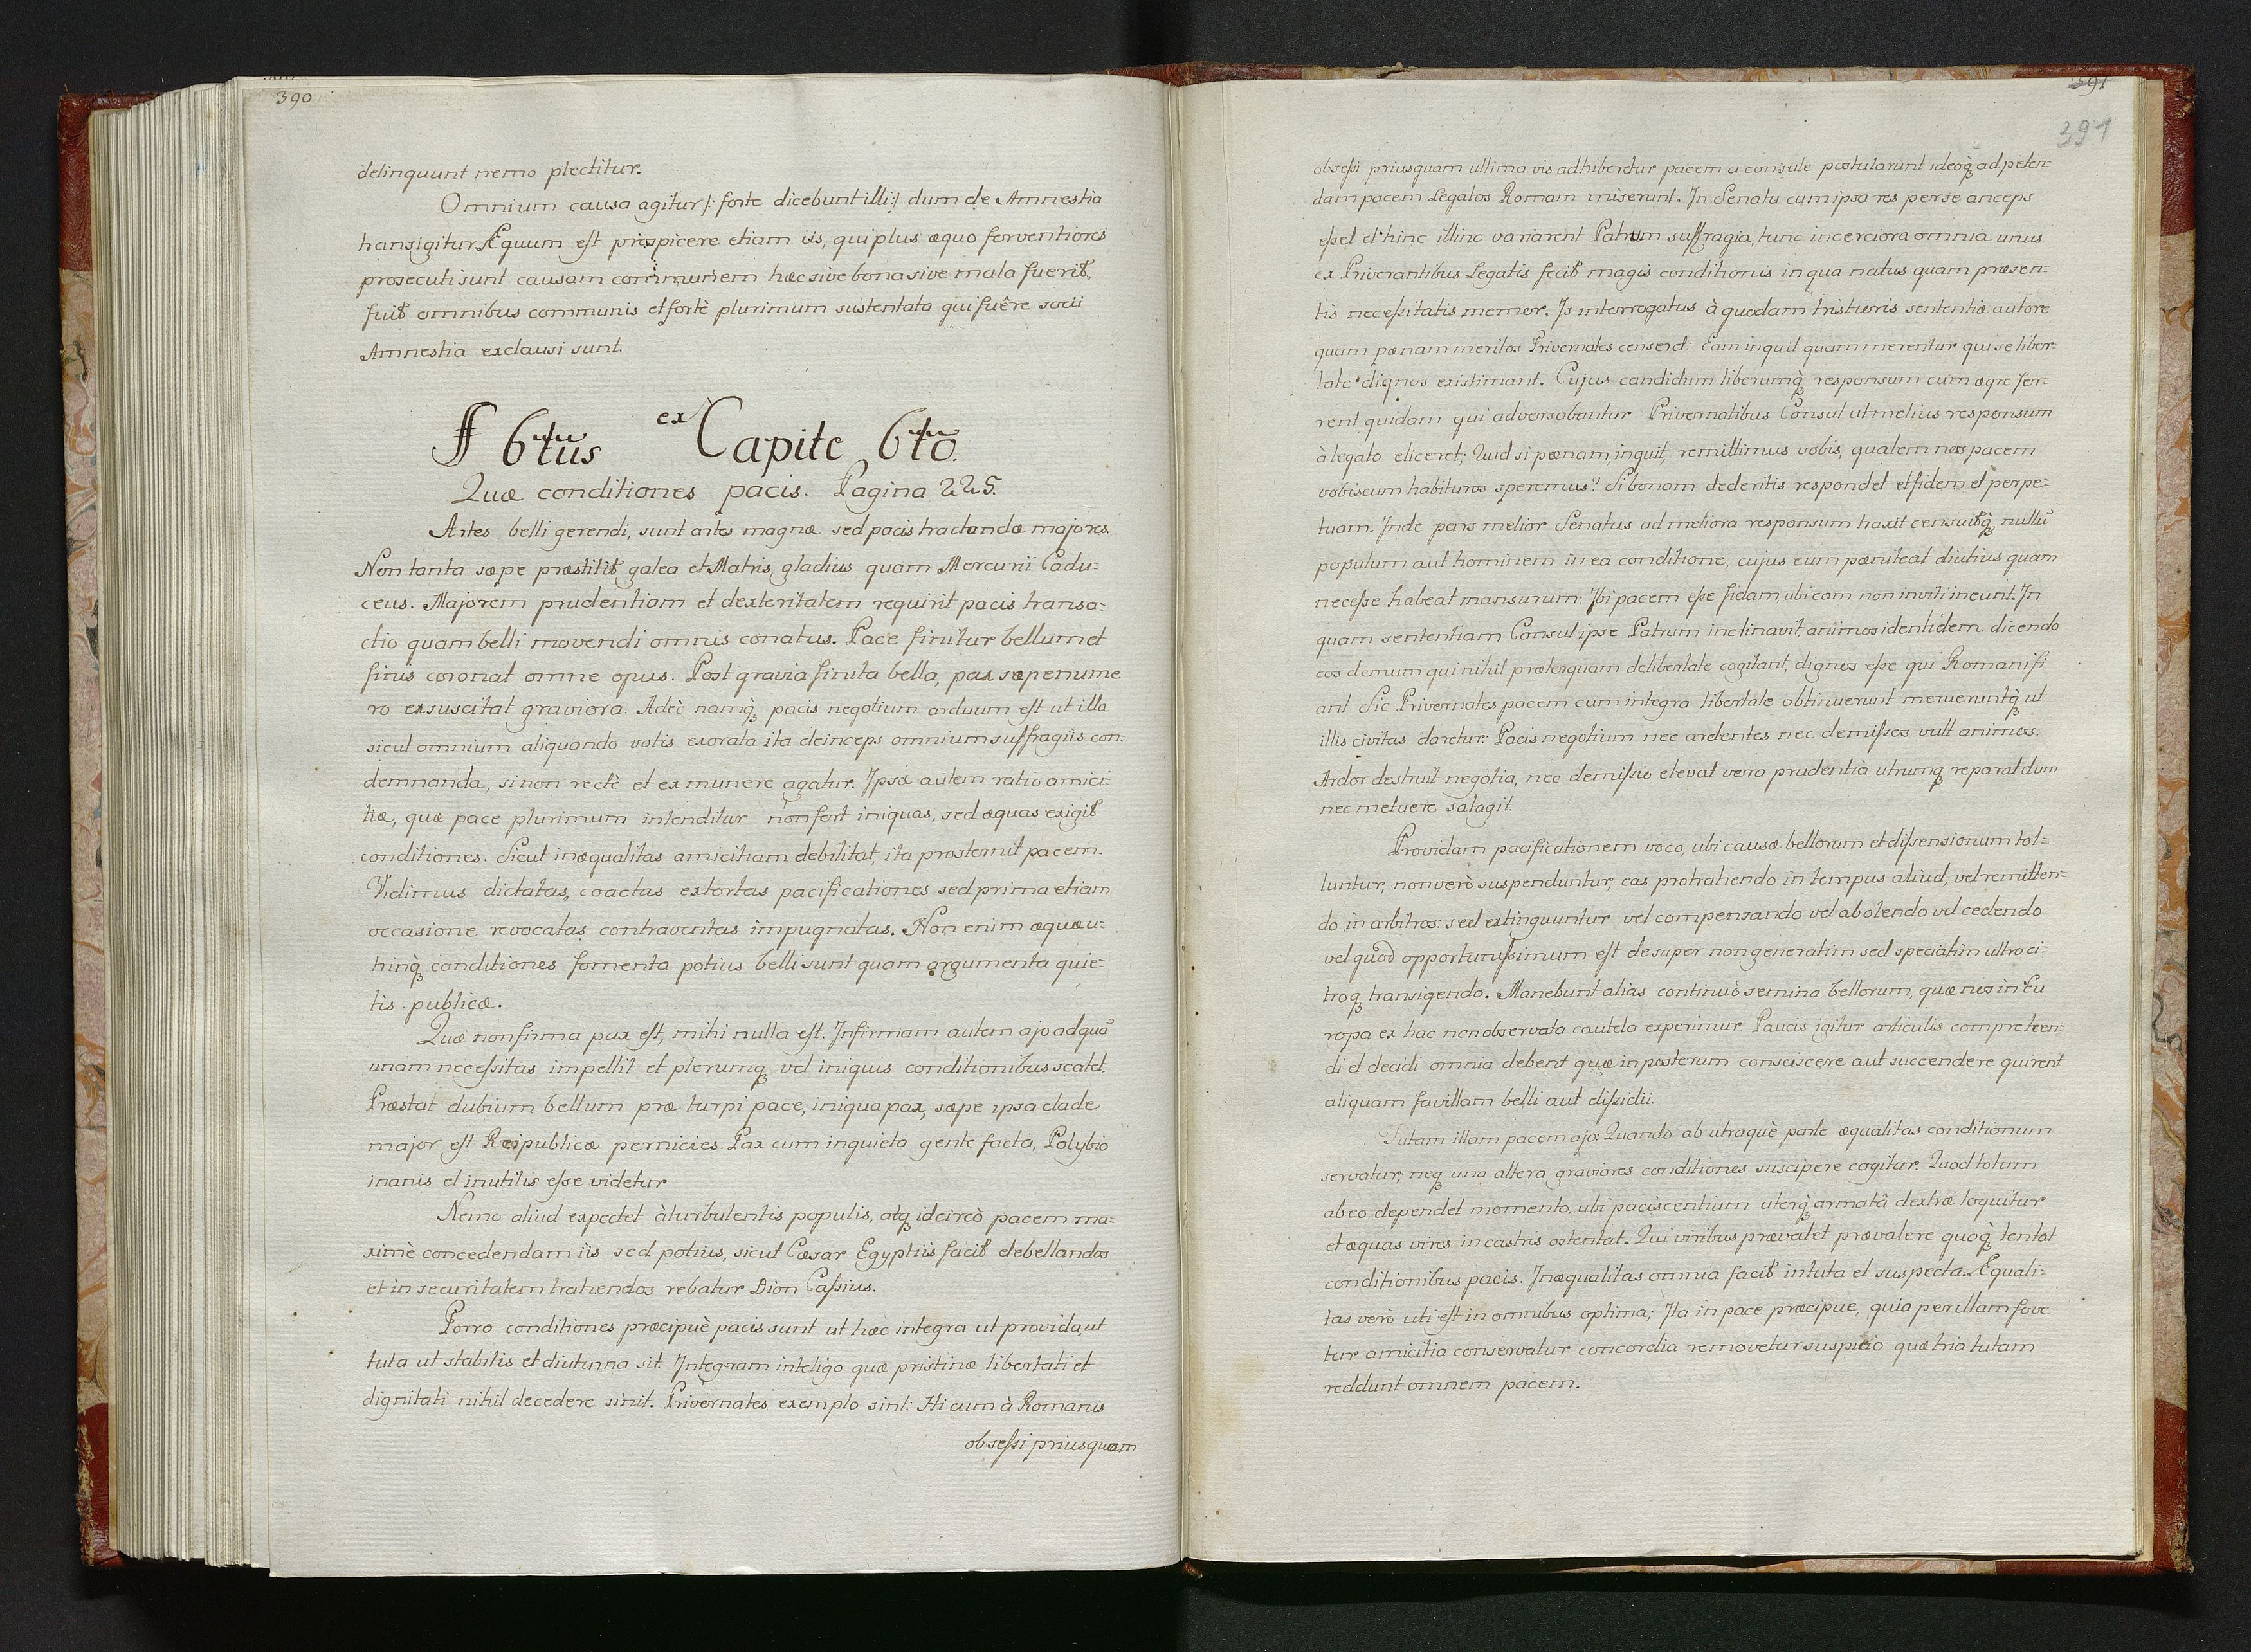 390
delinquunt nemo plectitur.
Omnium causa agitur /: forte dicebunt illi :/ dum de Amnestia
transigitur. Æquum est prospicere etiam iis, qui plus æquo ferventiores
prosecuti sunt causam communem hæc sive bona sive mala fuerit,
fuit omnibus communis et fortè plurimum sustentata qui fuêre socii
Amnestia exclausi sunt.
§ 6tus ex Capite 6to.
Quæ conditiones pacis. Pagina 225.
Artes belli gerendi, sunt artes magnæ sed pacis tractandæ majores.
Non tanta sæpe præstitit galea et Matris gladius quam Mercurii Cadu-
ceus. Majorem prudentiam et dexteritatem requirit pacis transa-
ctio quam belli movendi omnis conatus. Pace finitur bellum et
finis coronat omne opus. Post gravia finita bella, pax sæpenume
ro exsuscitat graviora. Adeò namq; pacis negotium arduum est ut illa
sicut omnium aliquando votis exorata ita deinceps omnium suffragiis con-
demnanda, si non rectè et ex munere agatur. Ipsa autem ratio amici-
tiæ, quæ pace plurimum intenditur non fert iniquas, sed æquas exigit
conditiones. Sicut inæqualitas amicitiam debilitat, ita prosternit pacem.
Vidimus dictatas, coactas extortas pacificationes sed prima etiam
occasione revocatas contraventas impugnatas. Non enim æquæ u-
trinq; conditiones fomenta potius belli sunt quam argumenta quie-
tis publicæ.
Quæ non firma pax est, mihi nulla est. Infirmam autem ajo ad quã
unam necessitas impellit et plerumq; vel iniquis conditionibus scatet.
Præstat dubium bellum præ turpi pace, iniqua pax, sæpe ipsa clade
major est Reipublicæ pernicies. Pax cum inquieta gente facta, Polybio
inanis et inutilis esse videtur
Nemo aliud expectet à turbulentis populis, atq; idcircò pacem ma-
ximè concedendam iis sed potius, sicut Cæsar Egyptiis facit debellandos
et in securitatem trahendos rebatur Dion Cassius.
Porro conditiones præcipuè pacis sunt ut hæc integra ut provida, ut
tuta ut stabilis et diuturna sit. Integram inteligo quæ pristinæ libertati et
dignitati nihil decedere sinit. Privernates exemplo sint: Hi cum à Romanis
obsessi priusquam
391
391
obsessi priusquam ultima vis adhiberetur pacem a consule postularunt ideoq; ad peten-
dam pacem Legatos Romam miserunt. In Senatu cum ipsa res per se anceps
esset et hinc illinc variarent Patrum suffragia, tunc incerciora omnia unus
ex Privernantibus Legatis fecit magis conditionis in qua natus quam præsen-
tis necessitatis memor. Is interrogatus à quodam tristioris sententiæ autore
quam pænam meritos Privernates censeret: Eam inquit quam merentur qui se liber-
tate dignos existimant. Cujus candidum liberumq; responsum cum ægre fer-
rent quidam qui adversabantur Privernatibus Consul ut melius responsum
à legato eliceret; Quid si pænam, inquit, remittimus vobis, qualem nos pacem
vobiscum habituros speremus? Si bonam dederitis respondet et fidem et perpe-
tuam. Inde pars melior Senatus ad meliora responsum traxit censuitq; nullũ
populum aut hominem in ea conditione, cujus eum pæniteat diutius quam
necesse habeat mansurum: Ibi pacem esse fidam, ubi eam non inviti ineunt. In
quam sententiam Consul ipse Patrum inclinavit, animos identidem dicendo
eos demum qui nihil præterquam de libertate cogitant, dignos esse qui Romani fi
ant Sic Privernates pacem cum integra libertate obtinuerunt merueruntq; ut
illis civitas daretur. Pacis negotium nec ardentes nec demissos vult animos.
Ardor destruit negotia, nec demissio elevat vera prudentia utrumq; reparat dum
nec metuere satagit.
Providam pacificationem voco, ubi causæ bellorum et dissensionum tol-
luntur, non verò suspenduntur, eas protrahendo in tempus aliud, vel remitten-
do in arbitros: sed extinguuntur vel compensando vel abolendo vel cedendo
vel quod opportunissimum est desuper non generatim sed speciatim ultro ci-
troq; transigendo. Manebunt alias continuò semina bellorum, quæ nos in Eu
ropa ex hac non observata cautela experimur. Paucis igitur articulis comprehen-
di et decidi omnia debent quæ in posterum consciscere aut succendere quirent
aliquam favillam belli aut dissidii.
Tutam illam pacem ajo: Quando ab utraquè parte æqualitas conditionum
servatur, neq; una altera graviores conditiones suscipere cogitur. Quod totum
ab eo dependet momento, ubi paciscentium uterq; armatâ dextræ loquitur
et æquas vires in castris ostentat. Qui viribus prævalet prævalere quoq; tentat
conditionibus pacis. Inæqualitas omnia facit intuta et suspecta. Equali-
tas verò uti est in omnibus optima; Ita in pace præcipue, quia per illam fove
tur amicitia conservatur concordia removetur suspicio quæ tria tutam
reddunt omnem pacem.